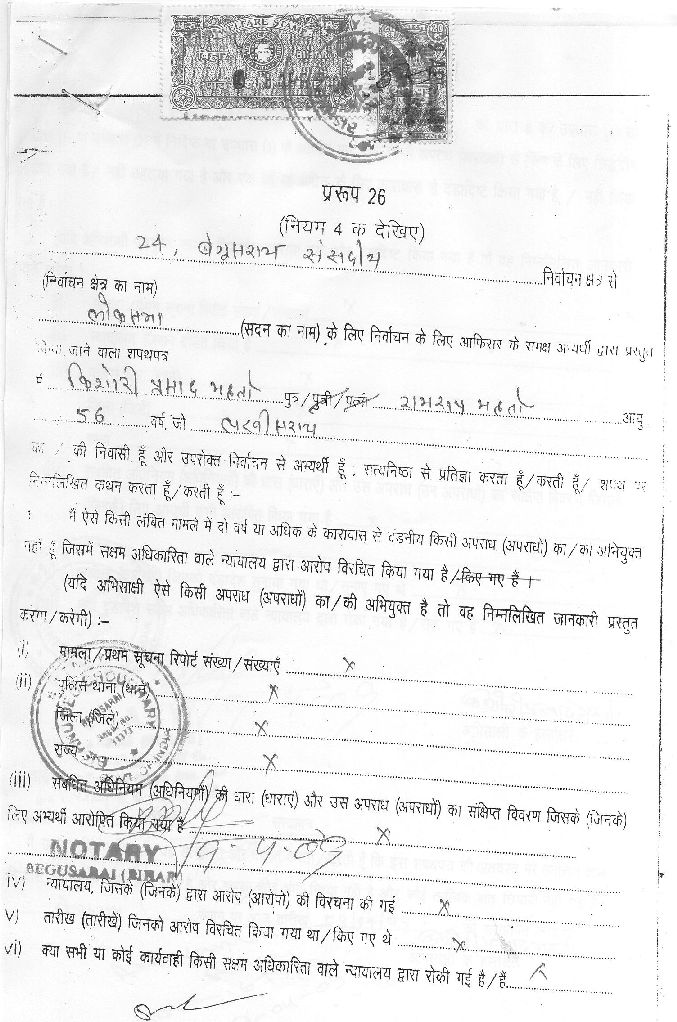 प्ररूप 26
(नियम 4 क देखिए)
24, बेगूसराय संसदीय निर्वाचन क्षेत्र से
(निर्वाचन क्षेत्र का नाम)
लोकसभा (सदन का नाम) के लिए निर्वाचन के लिए आफिसर के समक्ष अभ्यर्थी द्वारा प्रस्तुत
किया जाने वाला शपथपत्र
मैं किशोरी प्रसाद महतो पुत्र/पुत्री/पत्नी रामराय महतो आयु
56 वर्ष, जो लखीसराय
का / की निवासी हूँ और उपरोक्त निर्वाचन से अभ्यर्थी हूँ : सत्यनिष्ठा से प्रतिज्ञा करता हूँ/करती हूँ/ शपथ पर
निम्नलिखित कथन करता हूँ/करती हूँ :-
मैं ऐसे किसी लंबित मामले में दो वर्ष या अधिक के कारावास से दंडनीय किसी अपराध (अपराधों) का/का अभियुक्त
नहीं हूँ जिसमें सक्षम अधिकारिता वाले न्यायालय द्वारा आरोप विरचित किया गया है/किए गए हैं ।
(यदि अभिसाक्षी ऐसे किसी अपराध (अपराधों) का/की अभियुक्त है तो वह निम्नलिखित जानकारी प्रस्तुत
करेगा/करेगी) :-
(i) मामला/प्रथम सूचना रिपोर्ट संख्या/संख्याएँ x
(ii) पुलिस थाना (थाने) x
जिला (जिले) x
राज्य x
(iii) संबंधित अधिनियम (अधिनियमों) की धारा (धाराएं) और उस अपराध (अपराधों) का संक्षिप्त विवरण जिसके (जिनके)
लिए अभ्यर्थी आरोपित किया गया है x
NOTARY 9-4-09
BEGUSARAI (BIHAR)
iv) न्यायालय, जिसके (जिनके) द्वारा आरोप (आरोपों) की विरचना की गई x
v) तारीख (तारीखें) जिनको आरोप विरचित किया गया था/किए गए थे x
vi) क्या सभी या कोई कार्यवाही किसी सक्षम अधिकारिता वाले न्यायालय द्वारा रोकी गई है/हैं